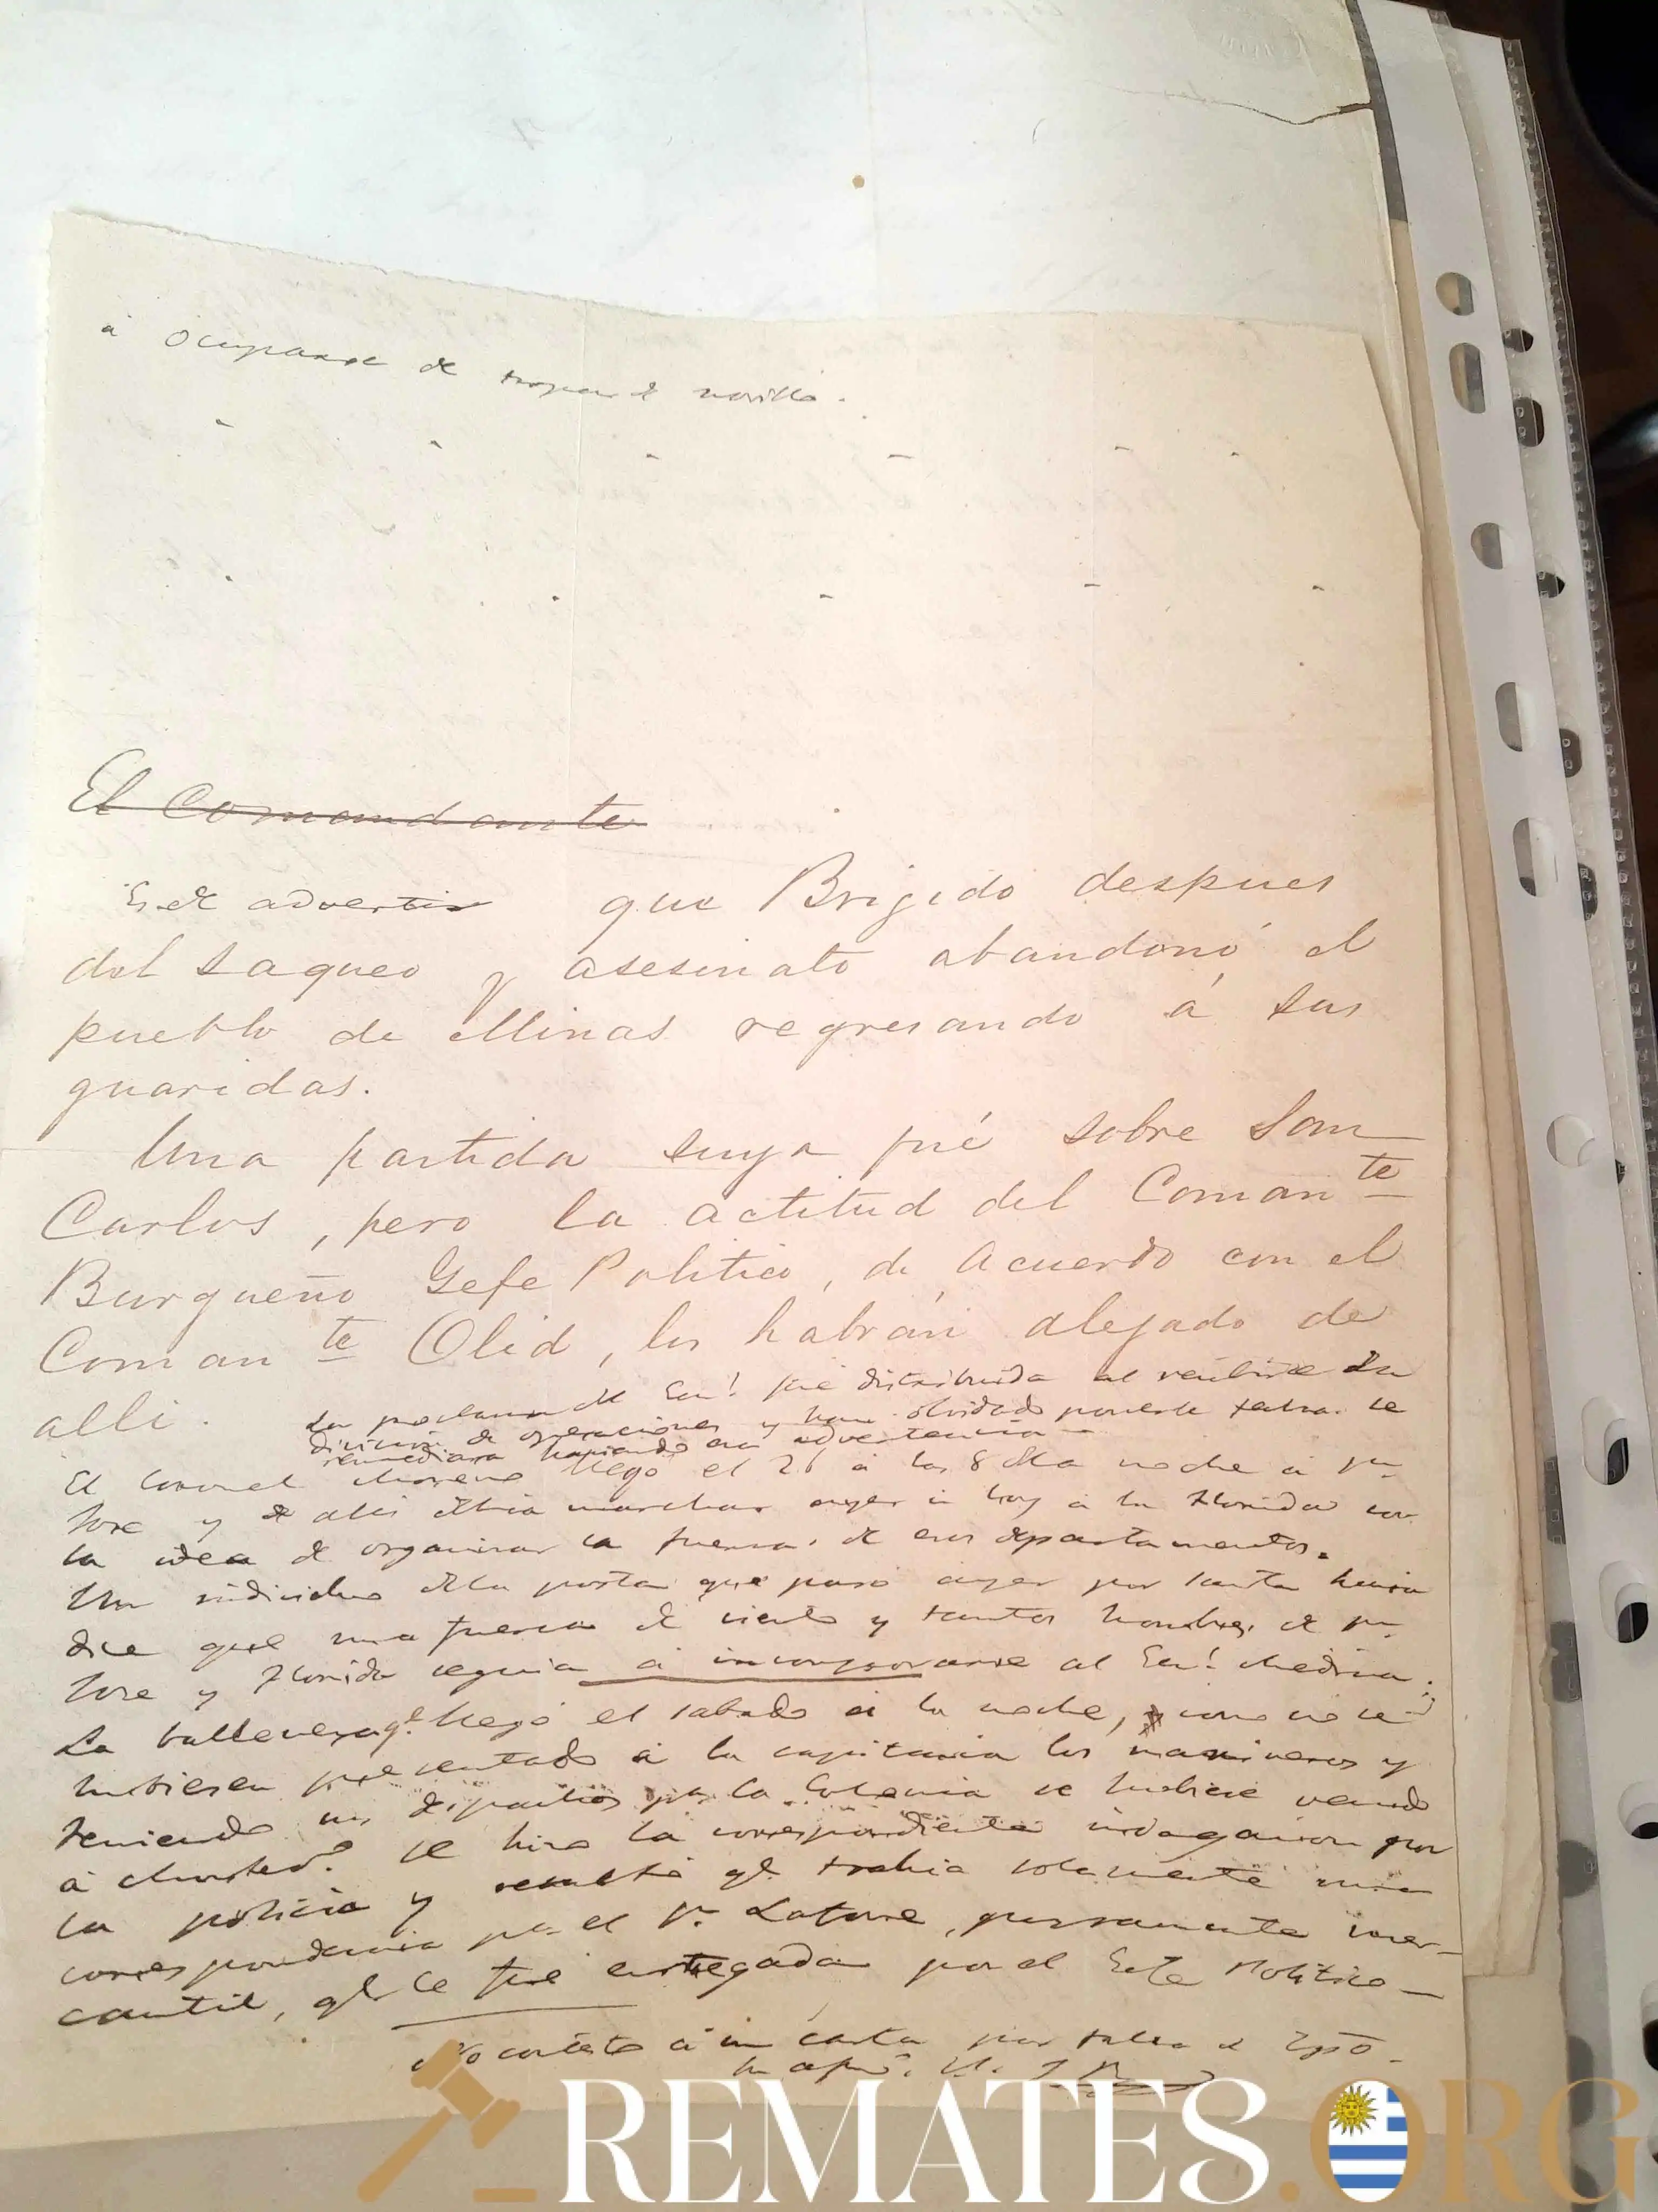 á Ocuparse de tropas de novillo.
El Comandante
Es de advertir que Brigido despues
del saqueo y asesinato abandonó el
pueblo de Minas regresando á sus
guaridas.
Una partida suya fué sobre San
Carlos, pero la actitud del Coman te
Burgueño Gefe Politico, de acuerdo con el
Coman te Olid, los habrán alejado de
alli.
La proclama del Gen.l fué distribuida al recibirse en
division de operaciones y han olvidado ponerle fecha. se
remediara haciendo esa advertencia
El Coronel Moreno llegó el 26 á las 8 de la noche á Sn
Jose y de alli debia marchar ayer ú hoy á la Florida con
la idea de organizar la fuerza de esos departamentos.
Un individuo de la posta que pasó ayer por Santa Lucia
dice que una fuerza de ciento y tantos hombres de Sn
Jose y Florida seguia á incorporarse al Gen.l Medina.
La ballenera q.e llegó el sabado á la noche, como no se
hubiesen presentado á la capitania los marineros y
teniendo un la Colonia se hubiese venido
á se hizo la correspondiente indagacion por
la policia y resultó q.e trahia solamente una
correspondencia pa el Sr. Latorre, puramente mer-
cantil, q.e le fue entregada por el Gefe Politico
No contesto á su carta por falta de tpõ.
REMATES.ORG